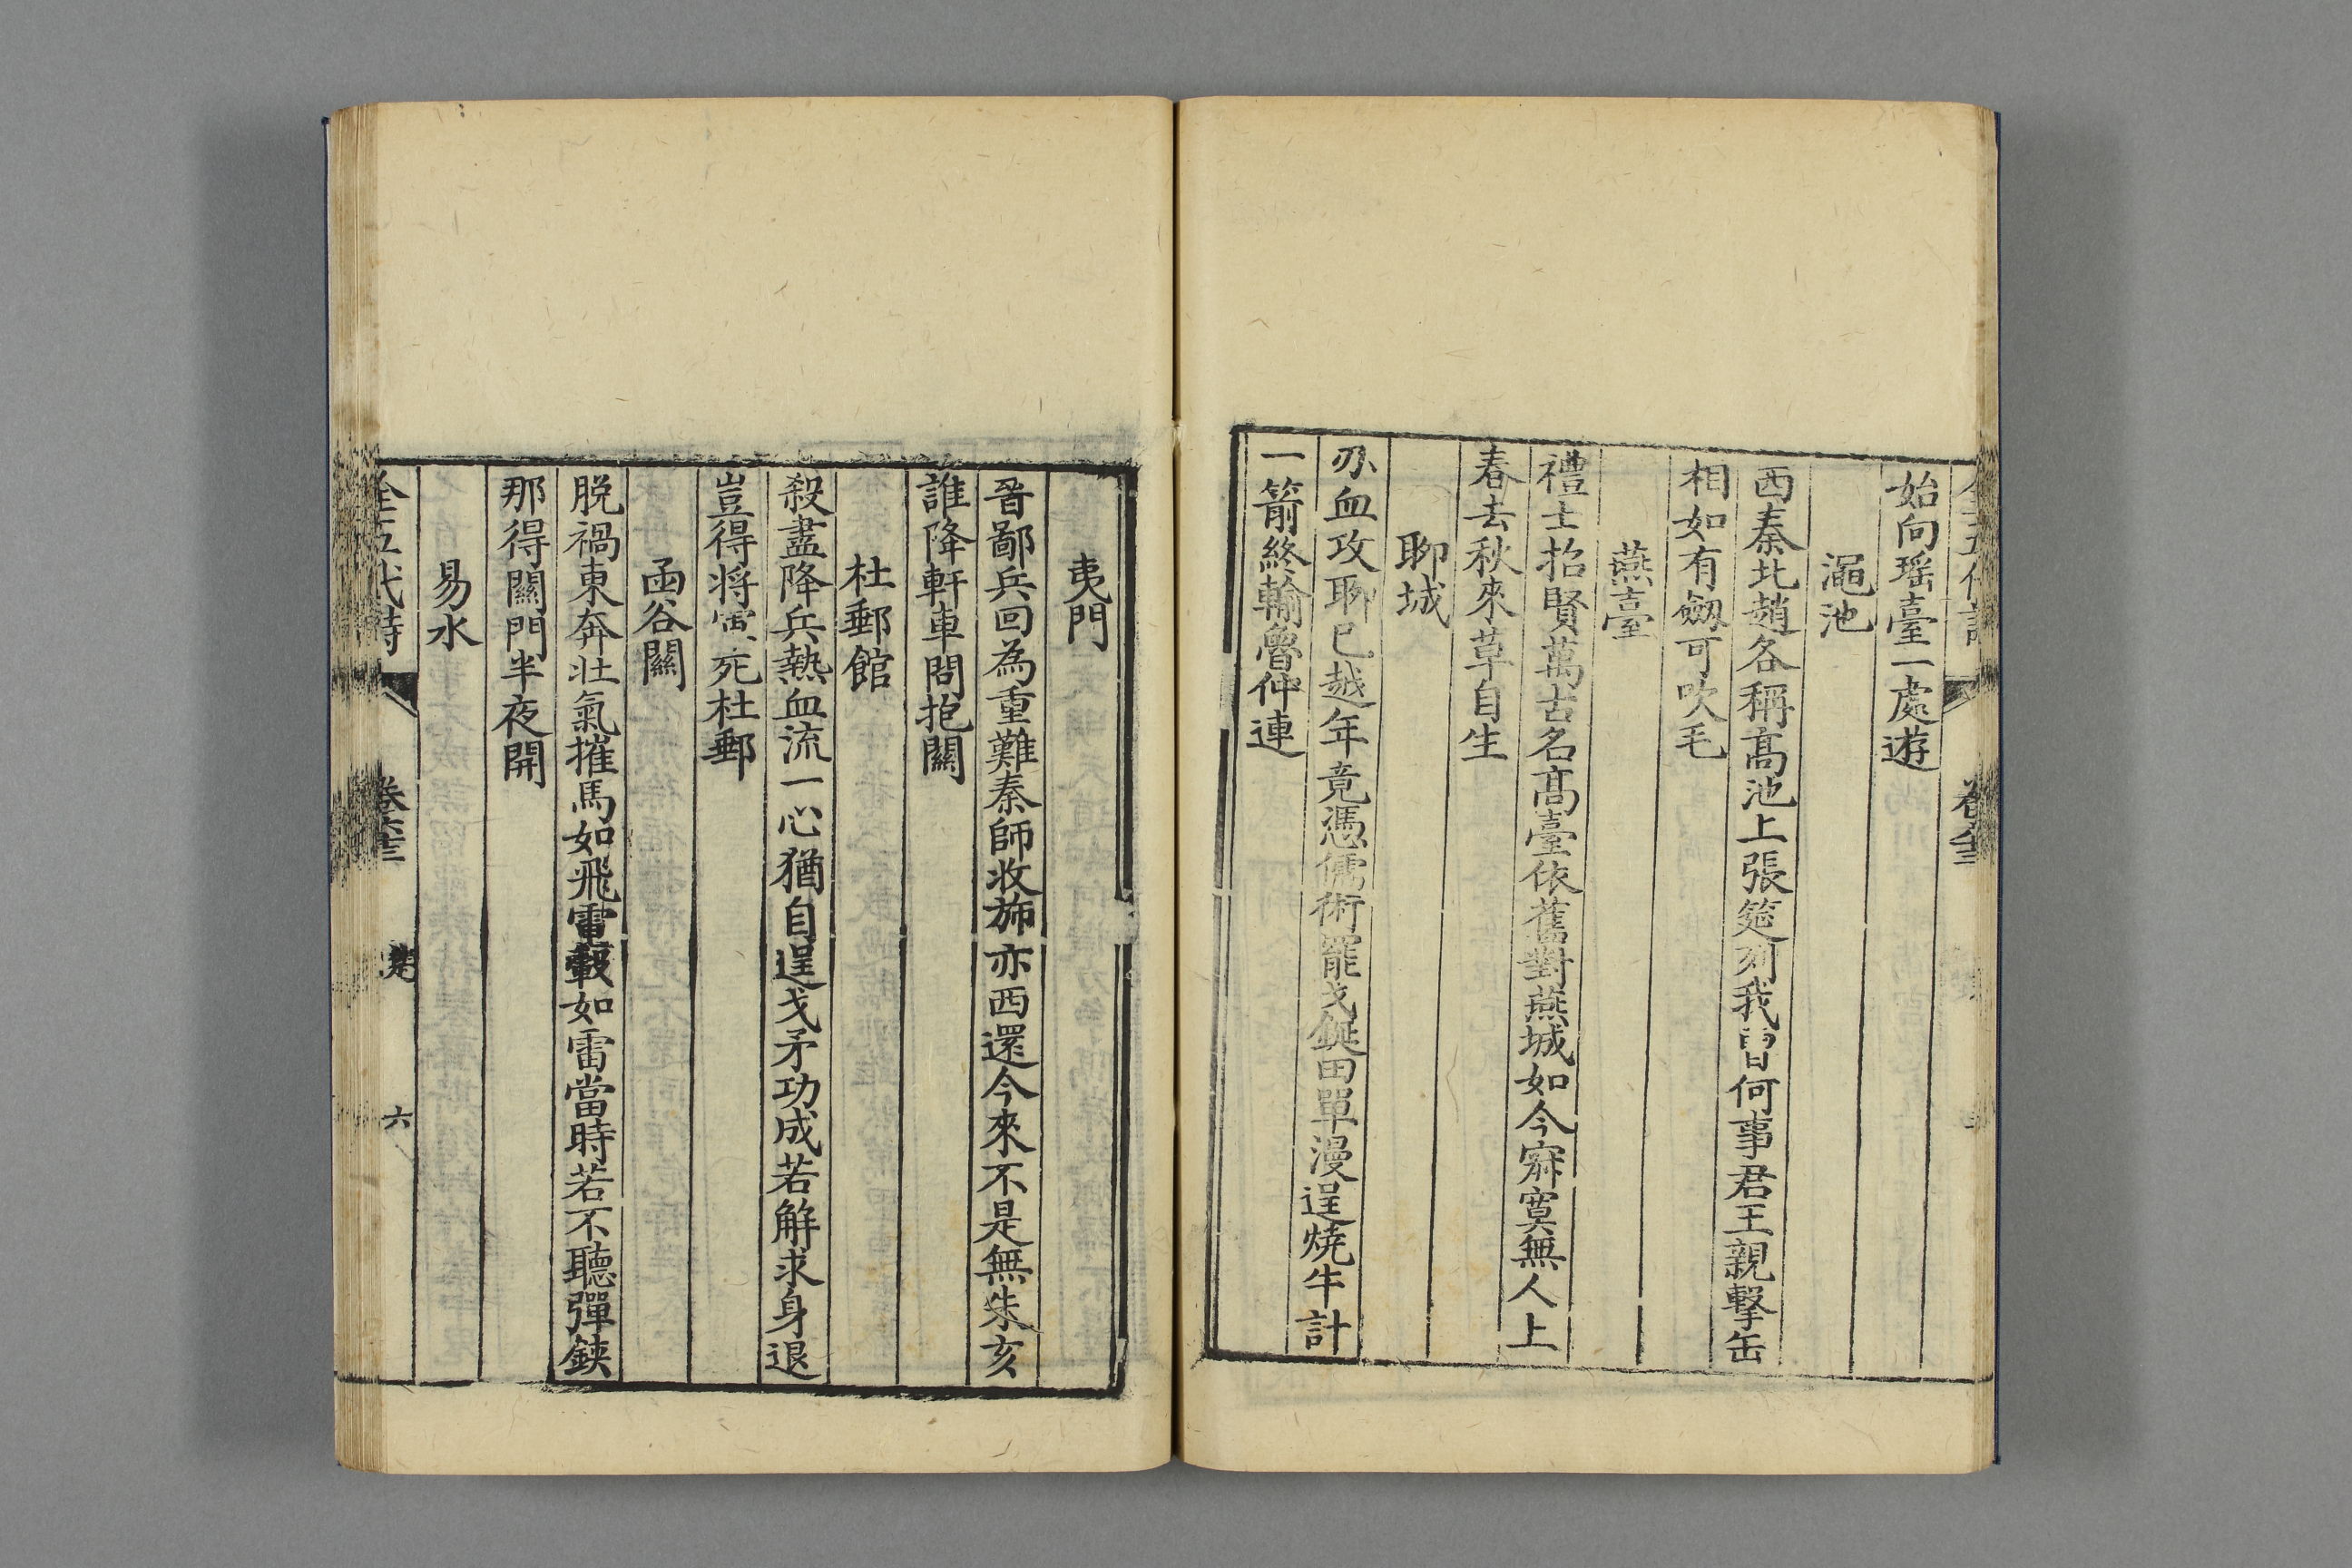 始向瑶臺一處遊
澠池
西秦北趙各稱高池上張筵列我曹何事君王親擊缶
相如有劔可吹毛
燕臺
禮士招賢萬古名高臺依舊對燕城如今寂寞無人上
春去秋來草自生
聊城
刅血攻聊已越年竟憑儒術罷戈鋋田單漫逞燒牛計
一箭終輸魯仲連
夷門
晉鄙兵回為重難秦師收斾亦西還今來不是無朱亥
誰降軒車問抱關
杜郵館
殺盡降兵熱血流一心猶自逞戈矛功成若解求身退
豈得將軍死杜郵
函谷關
脱禍東奔壯氣摧馬如飛電轂如雷當時若不聽彈鋏
那得關門半夜開
易水
全五代詩
六